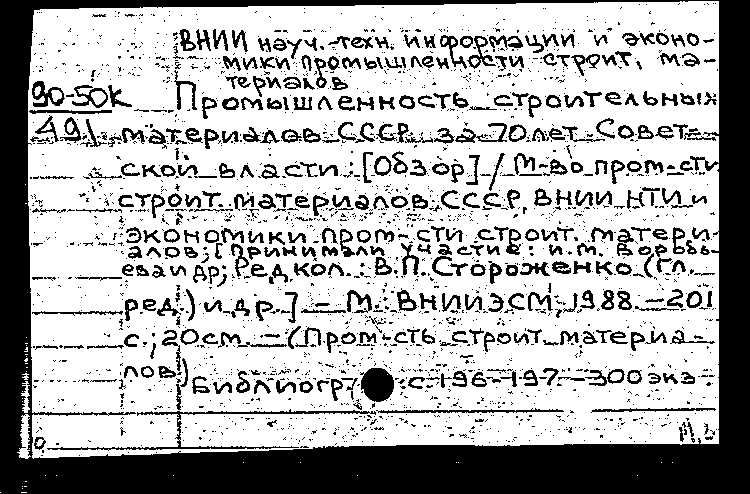 ВНИИ науч.-техн. информации и эконо-
мики промышленности строит. ма-
териалов
90-50К Промышленность строительных
491 материалов СССР за 70 лет Совет-
ской власти : [Обзор] / М-во пром-сти
строит. материалов СССР, ВНИИ НТИ и
экономики пром-сти строит. матери-
алов; [Принимали участие: И.М. Воробь-
ева и др; Редкол.: В.П. Стороженко (гл.
ред.) и др.] - М.: ВНИИЭСМ, 1988. - 201
с.; 20см. - (Пром-сть строит. материа-
лов)
Библиогр.: с. 196-197. - 300 экз.